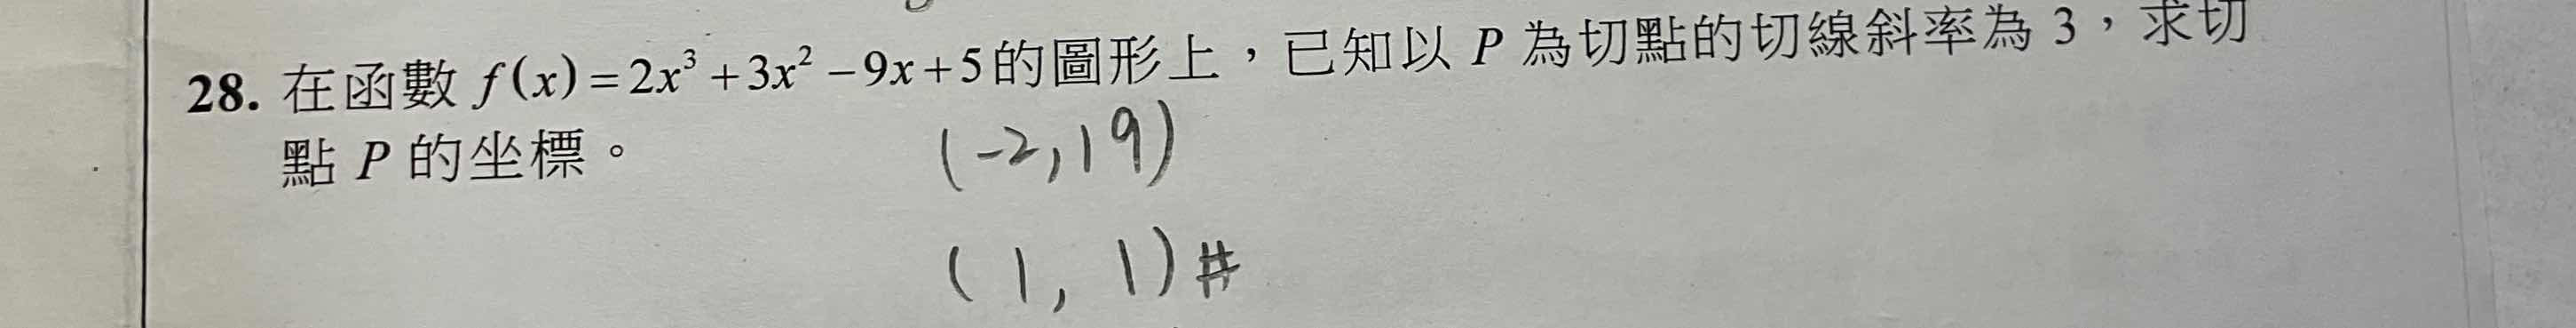 28. 在函數 f(x)=2x³+3x²−9x+5的圖形上，已知以 P 為切點的切線斜率為 3，求切
點 P 的坐標。
(-2,19)
(1,1)#